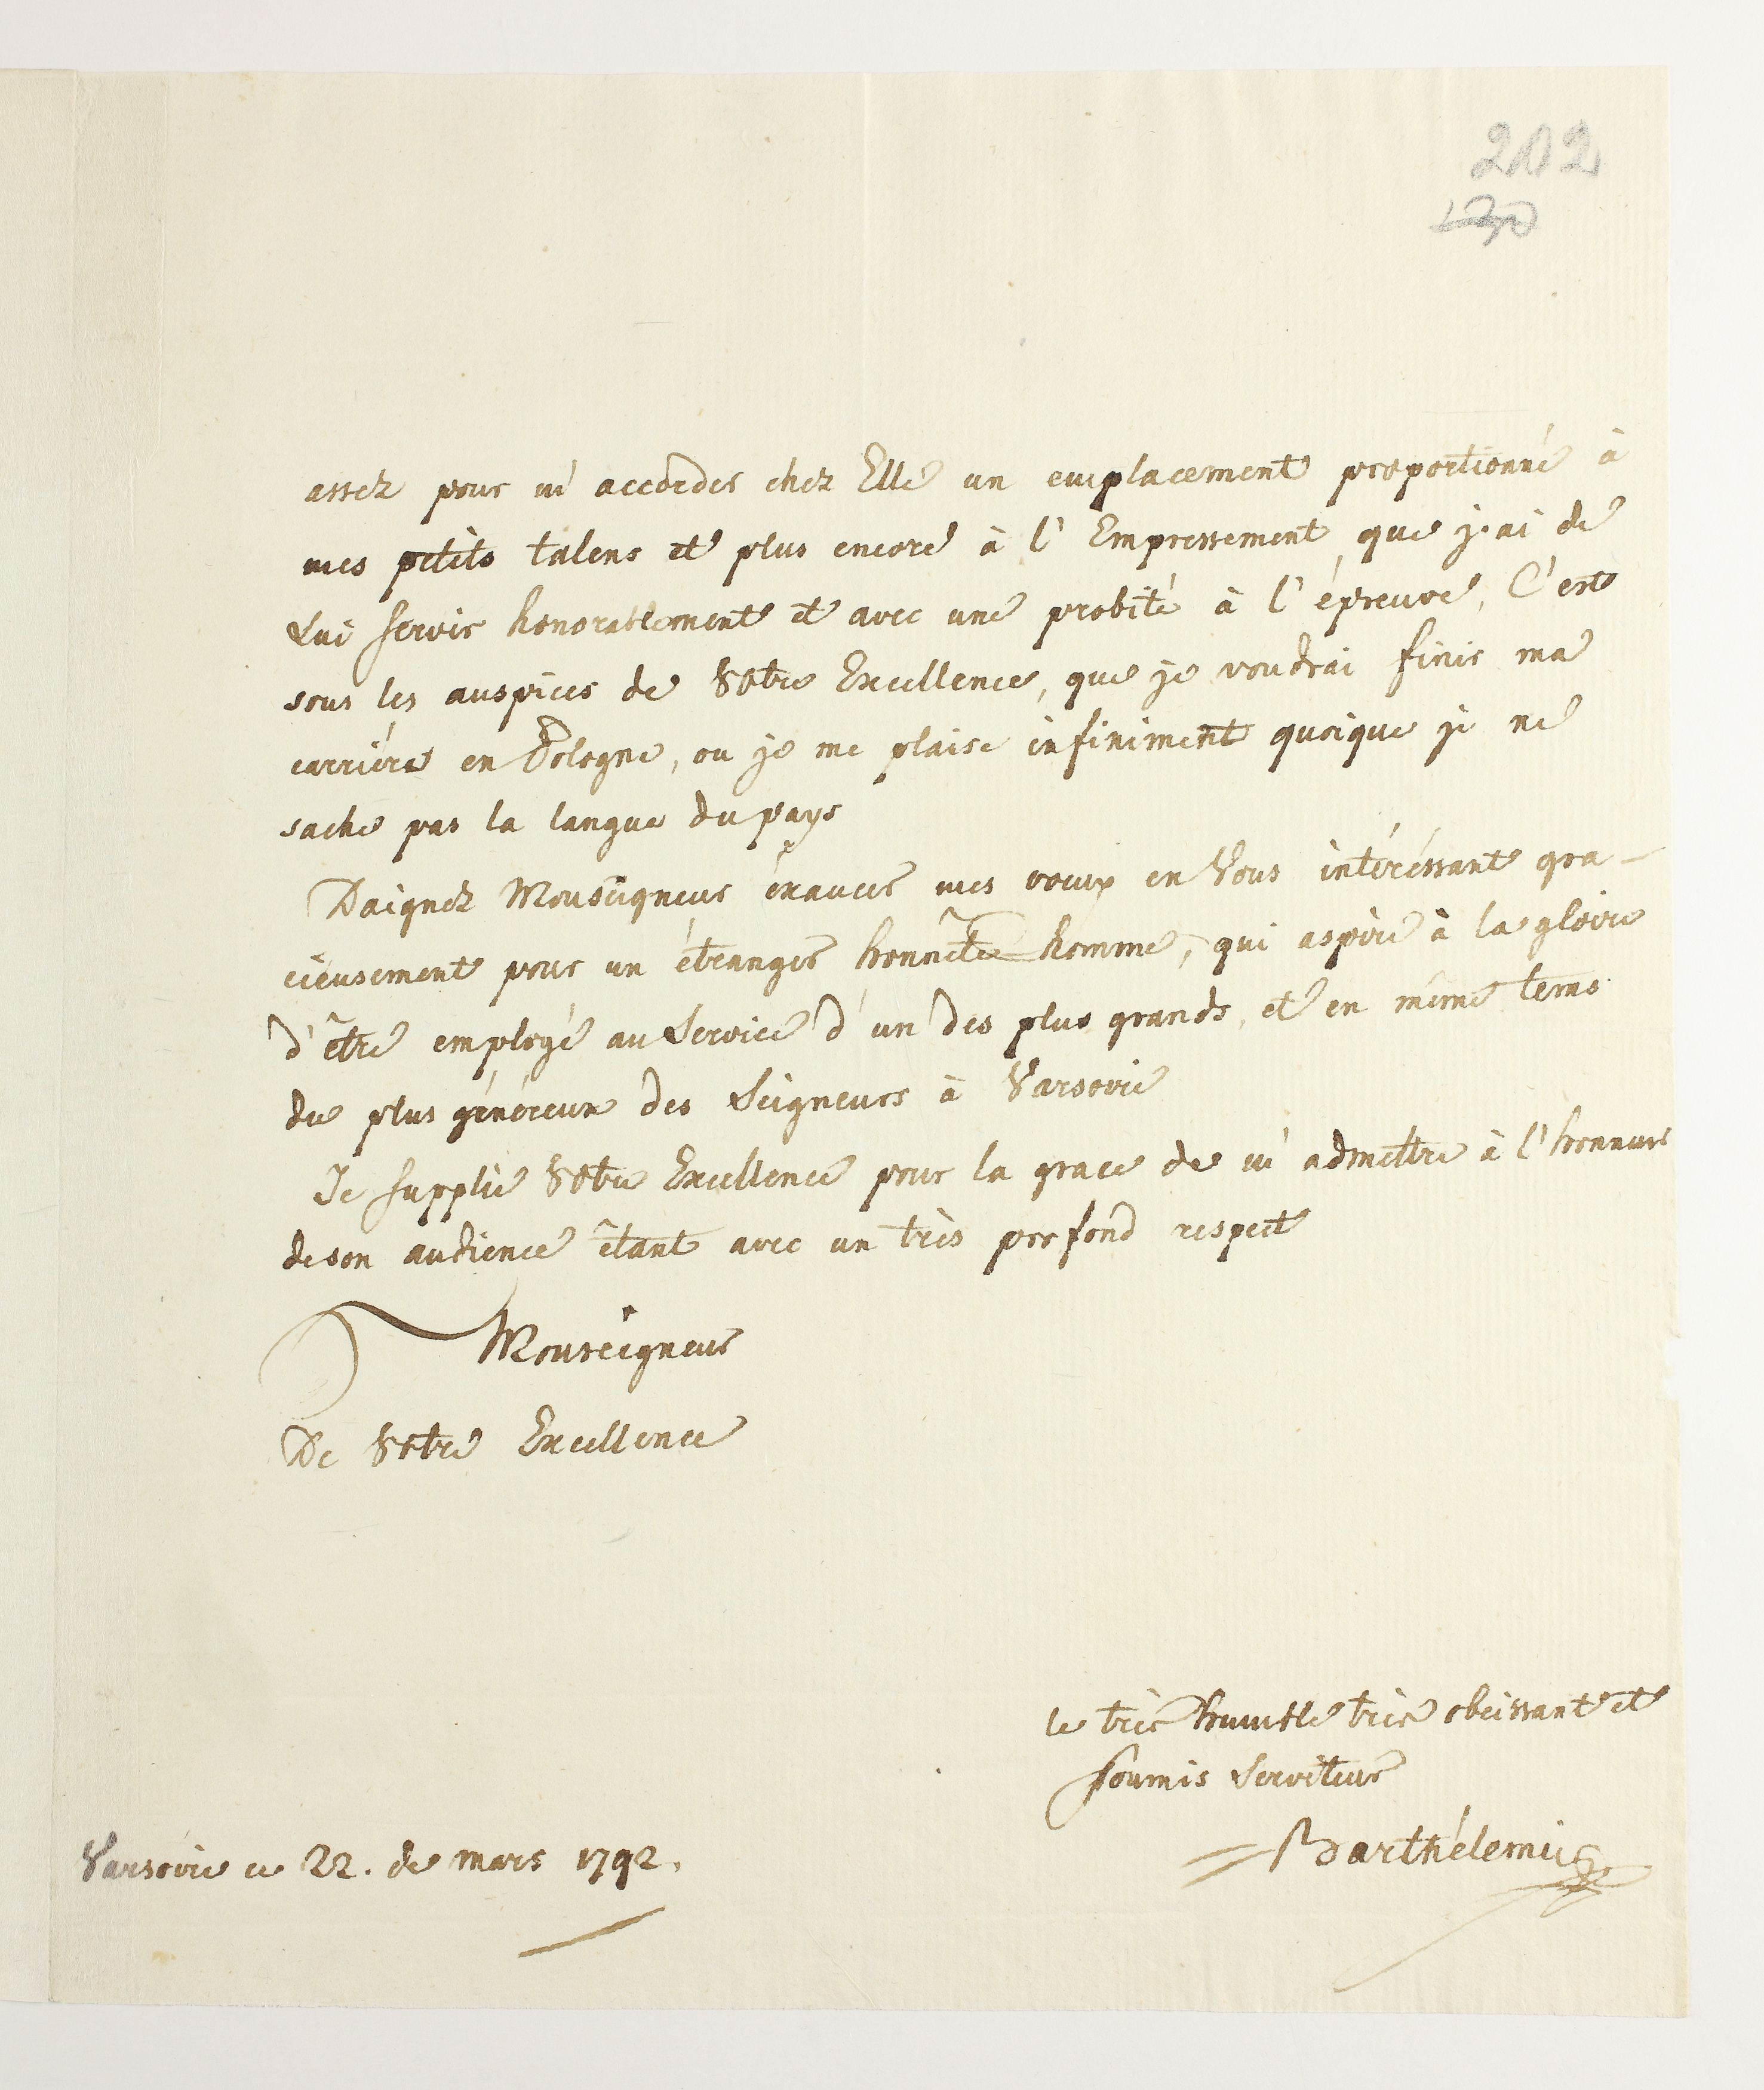 202
assez pour m'accorder chez Elle un emplacement proportionné à
mes petits talens et plus encore à l'Empressement que j'ai de
Lui servir honorablement et avec une probité à l'épreuve, C'est
sous les auspices de Votre Excellence, que je voudrai finir ma
carriére en Pologne, ou je me plaise infiniment quoique je ne
sache pas la langue du pays
Daignez Monseigneur éxaucer mes voeux en Vous intéréssant gra-
cieusement pour un étranger honnête homme, qui aspire à la gloire
d'être employé au Service d'un des plus grands, et en même tems
du plus généreux des Seigneurs à Varsovie
Je supplie Votre Excellence pour la grace de m'admettre à l'honneur
de son audience êtant avec un très profond respect
Monseigneur
De Votre Excellence
le très humble très obeissant et
soumis Serviteur
Barthélemi
Varsovie ce 22. de mars 1792.